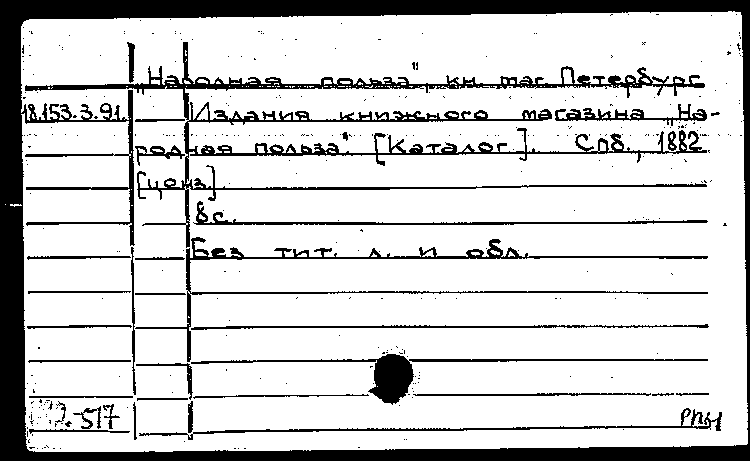 „Народная польза", кн. маг. Петербург
18.153.3.91. Издания книжного магазина „На-
родная польза". [Каталог]. Спб., 1882
[ценз.].
8 с.
Без тит. л. и обл.
2.-517